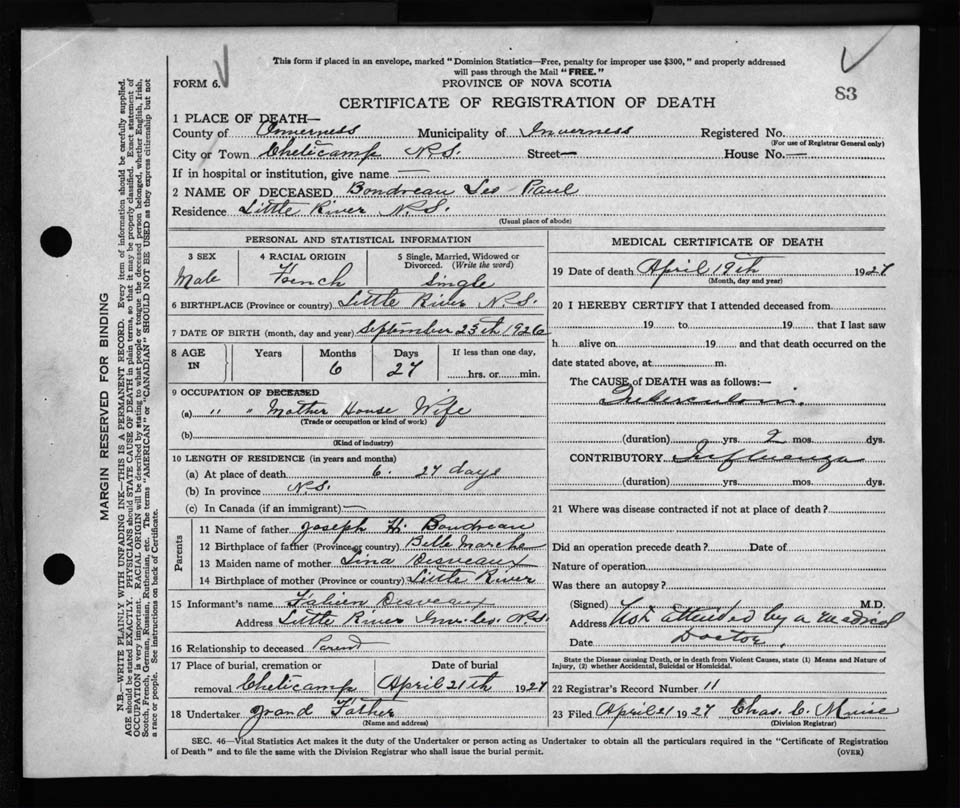 This form if placed in an envelope, marked "Dominion Statistics—Free, penalty for improper use $300," and properly addressed
will pass through the Mail "FREE."
FORM 6.
PROVINCE OF NOVA SCOTIA
83
CERTIFICATE OF REGISTRATION OF DEATH
1 PLACE OF DEATH—
County of Inverness Municipality of Inverness Registered No.
(For use of Registrar General only)
City or Town Cheticamp N.S. Street— House No.—
If in hospital or institution, give name —
2 NAME OF DECEASED Boudreau Leo Paul
Residence Little River N.S.
(Usual place of abode)
PERSONAL AND STATISTICAL INFORMATION
3 SEX 4 RACIAL ORIGIN 5 Single, Married, Widowed or
Divorced. (Write the word)
Male French Single
6 BIRTHPLACE (Province or country) Little River N.S.
7 DATE OF BIRTH (month, day and year) September 23th 1926
8 AGE Years Months Days If less than one day,
IN 6 27 hrs. or min.
9 OCCUPATION OF DECEASED
(a) " " Mother House Wife
(Trade or occupation or kind of work)
(b)
(Kind of industry)
10 LENGTH OF RESIDENCE (in years and months)
(a) At place of death 6. 27 days
(b) In province N.S.
(c) In Canada (if an immigrant) —
Parents
11 Name of father Joseph H. Boudreau
12 Birthplace of father (Province or country) Belle Marche
13 Maiden name of mother Lina Desveaux
14 Birthplace of mother (Province or country) Little River
15 Informant's name Fabien Desveaux
Address Little River Inv. Co. N.S.
16 Relationship to deceased Parent
17 Place of burial, cremation or Date of burial
removal Cheticamp April 21th 1927
18 Undertaker Grand Father
(Name and address)
MEDICAL CERTIFICATE OF DEATH
19 Date of death April 19th 1927
(Month, day and year)
20 I HEREBY CERTIFY that I attended deceased from
19 to 19 that I last saw
h alive on 19 and that death occurred on the
date stated above, at m.
The CAUSE of DEATH was as follows:—
Tuberculosis.
(duration) yrs. 2 mos. dys.
CONTRIBUTORY Influenza
(duration) yrs. mos. dys.
21 Where was disease contracted if not at place of death?
Did an operation precede death? Date of
Nature of operation
Was there an autopsy?
(Signed) M.D.
Address Not attended by a medical
Date Doctor.
State the Disease causing Death, or in death from Violent Causes, state (1) Means and Nature of
Injury, (2) whether Accidental, Suicidal or Homicidal.
22 Registrar's Record Number 11
23 Filed April 21 1927 Chas. C. Muise
(Division Registrar)
SEC. 46—Vital Statistics Act makes it the duty of the Undertaker or person acting as Undertaker to obtain all the particulars required in the "Certificate of Registration
of Death" and to file the same with the Division Registrar who shall issue the burial permit. (OVER)
MARGIN RESERVED FOR BINDING
N.B.—WRITE PLAINLY WITH UNFADING INK—THIS IS A PERMANENT RECORD. Every item of information should be carefully supplied.
AGE should be stated EXACTLY. PHYSICIANS should STATE CAUSE OF DEATH in plain terms, so that it may be properly classified. Exact statement of
OCCUPATION is very important. RACIAL ORIGIN will be described by stating to what people or tongue the deceased person belonged, whether English, Irish,
Scotch, French, German, Russian, Ruthenian, etc. The terms "AMERICAN" or "CANADIAN" SHOULD NOT BE USED as they express citizenship but not
a race or people. See instructions on back of Certificate.